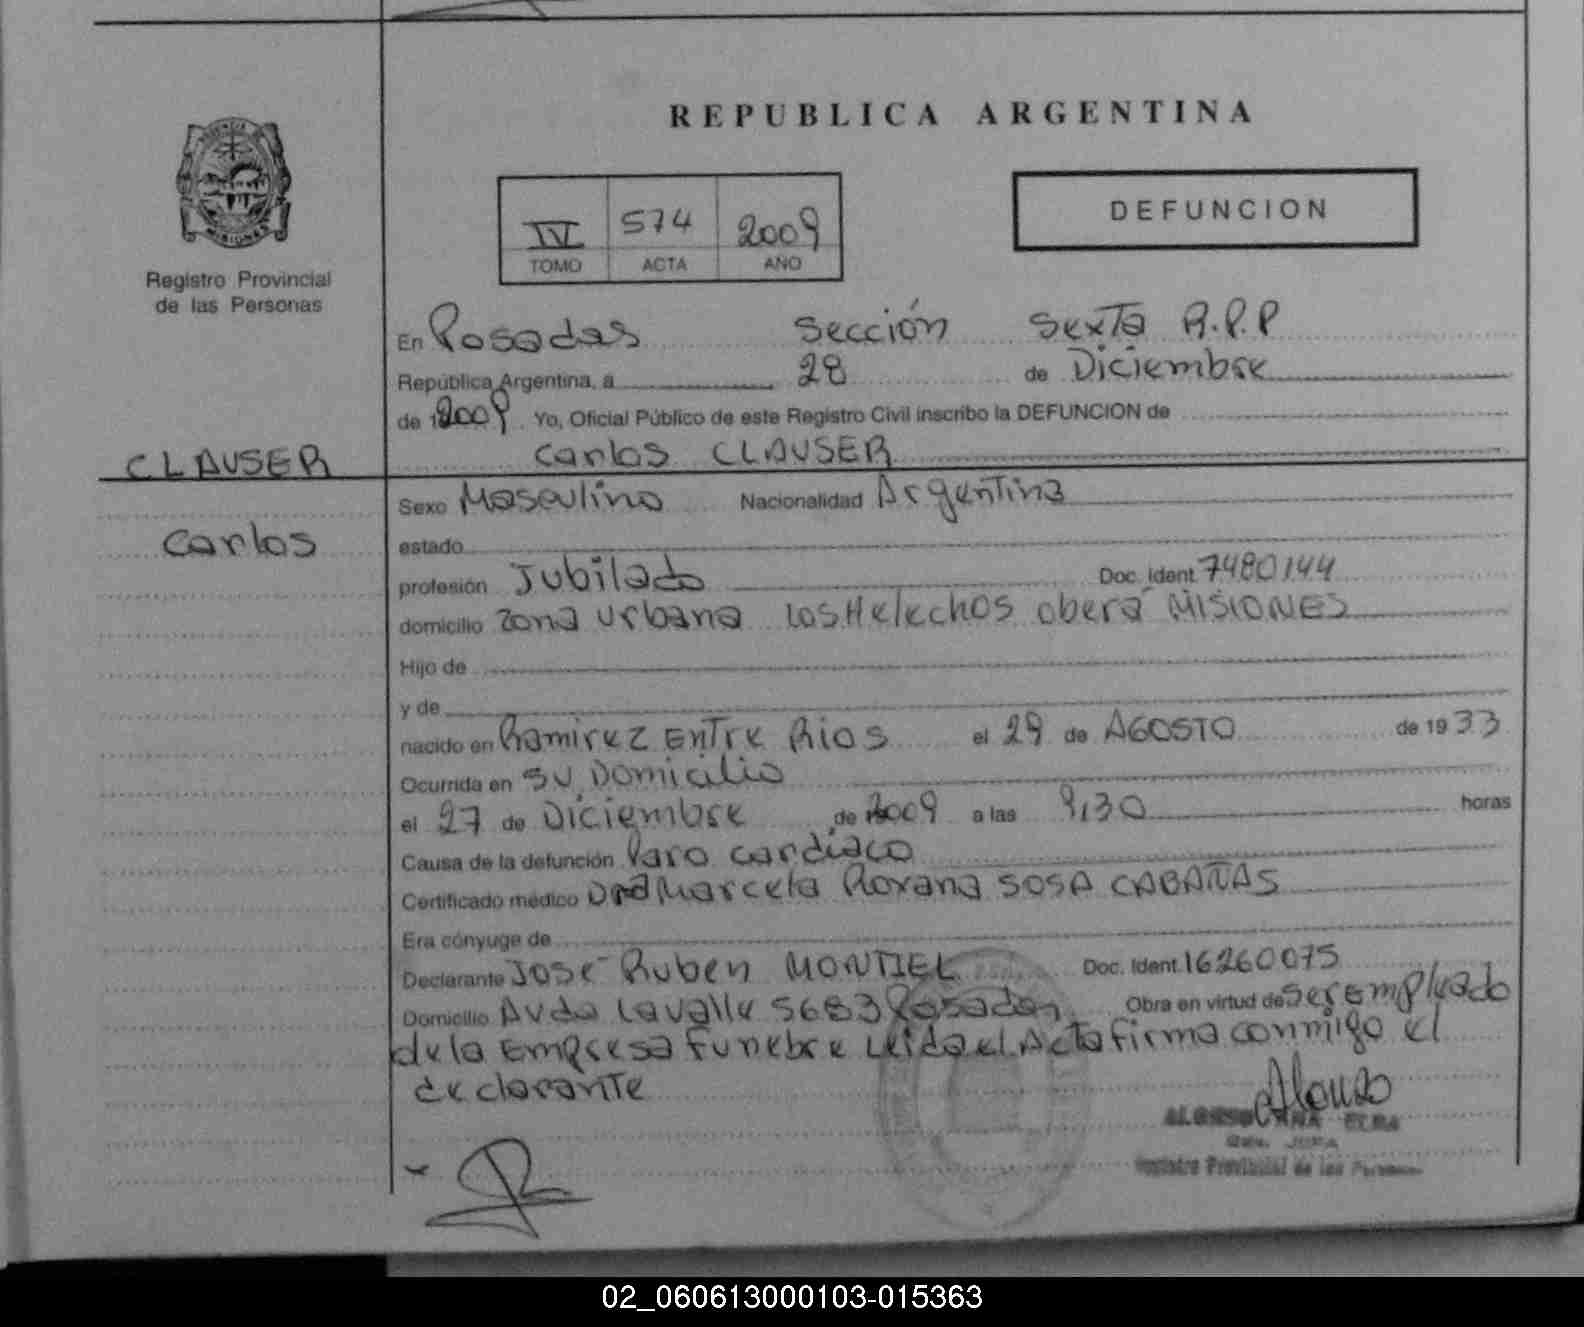 REPUBLICA ARGENTINA
MISIONES
Registro Provincial
de las Personas
IV 574 2009
TOMO ACTA AÑO
DEFUNCION
En Posadas Sección Sexta R.P.P
República Argentina, a 28 de Diciembre
de 2009 Yo, Oficial Público de este Registro Civil inscribo la DEFUNCION de
CLAUSER
Carlos CLAUSER
Carlos
Sexo Masculino Nacionalidad Argentina
estado
profesión Jubilado Doc. Ident. 7480144
domicilio Zona urbana Los Helechos oberá MISIONES
Hijo de
y de
nacido en Ramirez Entre Rios el 29 de AGOSTO de 1933
Ocurrida en su Domicilio
el 27 de Diciembre de 2009 a las 9,30 horas
Causa de la defunción Paro cardiaco
Certificado médico Dra Marcela Roxana SOSA CABAÑAS
Era cónyuge de
Declarante José Ruben MONTIEL Doc. Ident. 16260075
Domicilio Avda Lavalle 5683 Posadas Obra en virtud de ser empleado
de la Empresa Funebre Leida el Acta firma conmigo el
declarante
Alonso
ALONSO ANA ELBA
Registro Provincial de las Personas
02_060613000103-015363